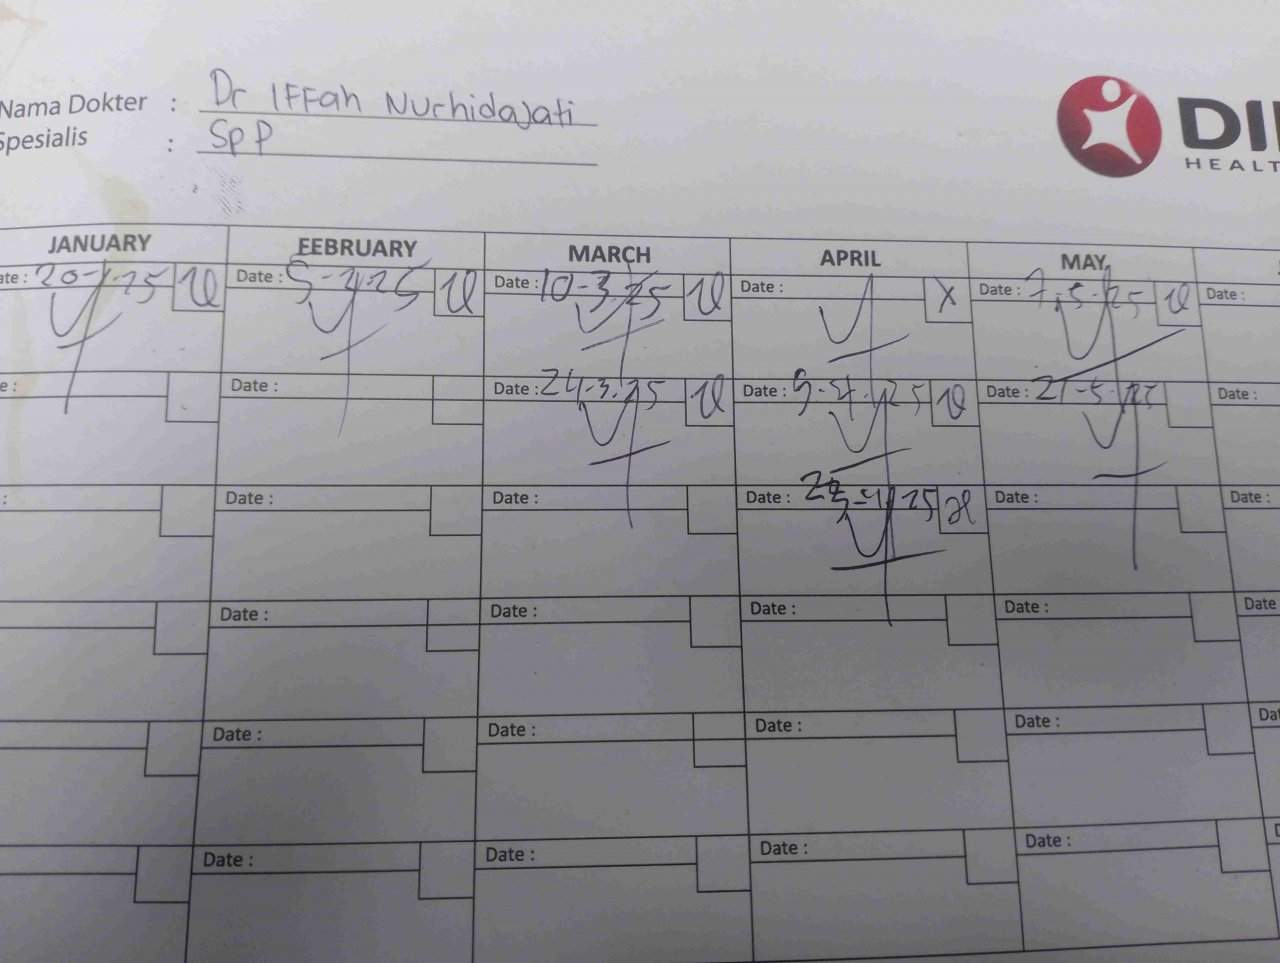 Nama Dokter : Dr Iffah Nurhidajati
Spesialis : SpP
HEALT
JANUARY FEBRUARY MARCH APRIL MAY
ate : 20-1-25 Date : 5-2-25 Date : 10-3-25 Date : X Date : 7-5-25 Date :
e : Date : Date : 24-3-25 Date : 5-4-25 Date : 21-5-25 Date :
: Date : Date : Date : 25 Date : Date :
Date : Date : Date : Date : Date
Date : Date : Date : Date : Dat
Date : Date : Date : Date : D